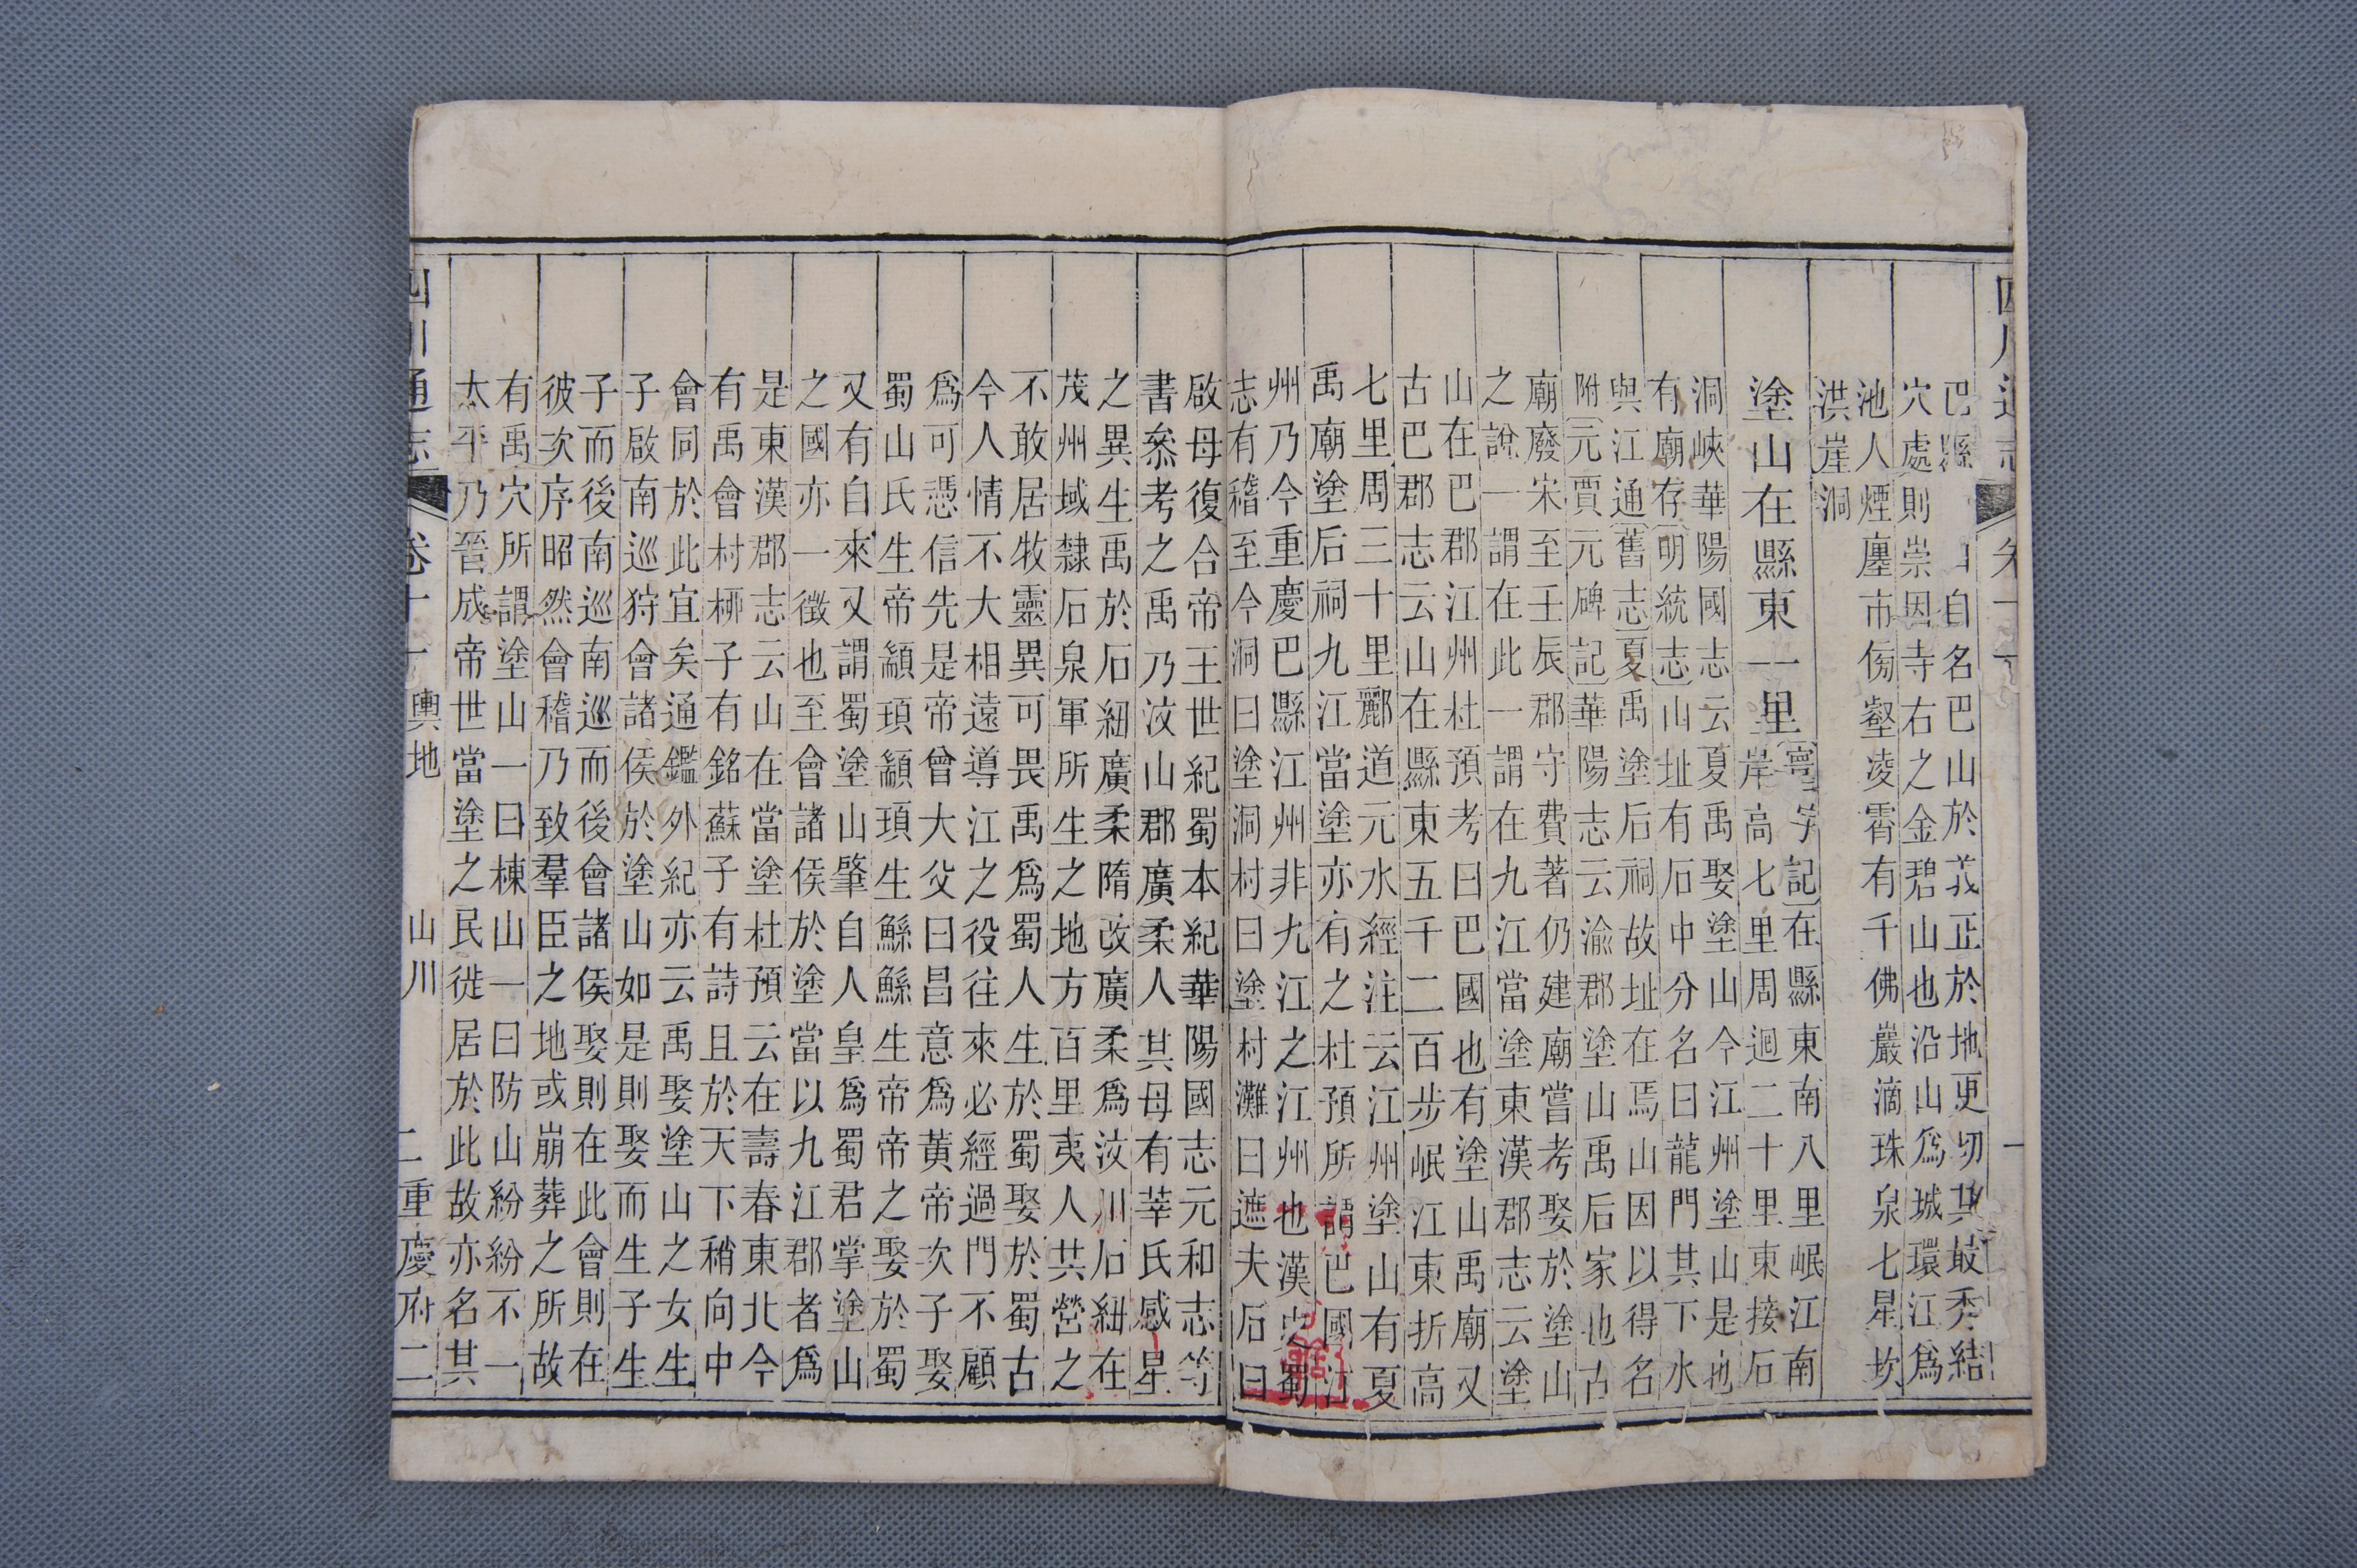 巴縣 山自名巴山於茂正於地更切其最秀結
穴處則崇因寺右之金碧山也沿山爲城環江爲
池人煙廛市傍壑凌霄有千佛巖滴珠泉七星坎
洪崖洞
塗山在縣東一里
寰宇記在縣東南八里岷江南
岸高七里周迴二十里東接石
洞峽華陽國志云夏禹娶塗山今江州塗山是也
有廟存明統志山址有石中分名曰龍門其下水
與江通舊志夏禹塗后祠故址在焉山因以得名
附元賈元碑記華陽志云渝郡塗山禹后家也古
廟廢宋至王辰郡守費著仍建廟嘗考娶於塗山
之說一謂在此一謂在九江當塗東漢郡志云塗
山在巴郡江州杜預考曰巴國也有塗山禹廟又
古巴郡志云山在縣東五千二百步岷江東折高
七里周三十里酈道元水經注云江州塗山有夏
禹廟塗后祠九江當塗亦有之杜預所謂巴國江
州乃今重慶巴縣江州非九江之江州也漢史蜀
志有稽至今洞曰塗洞村曰塗村灘曰遮夫石曰
啟母復合帝王世紀蜀本紀華陽國志元和志等
書叅考之禹乃汶山郡廣柔人其母有莘氏感星
之異生禹於石紐廣柔隋改廣柔爲汶川石紐在
茂州域隸石泉軍所生之地方百里夷人共營之
不敢居牧靈異可畏禹爲蜀人生於蜀娶於蜀古
今人情不大相遠導江之役往來必經過門不顧
爲可憑信先是帝曾大父曰昌意爲黃帝次子娶
蜀山氏生帝顓頊顓頊生鯀鯀生帝帝之娶於蜀
又有自來又謂蜀塗山肇自人皇爲蜀君掌塗山
之國亦一徵也至會諸侯於塗當以九江郡者爲
是東漢郡志云山在當塗杜預云在壽春東北今
有禹會村栁子有銘蘇子有詩且於天下稍向中
會同於此宜矣通鑑外紀亦云禹娶塗山之女生
子啟南巡狩會諸侯於塗山如是則娶而生子生
子而後南巡南巡而後會諸侯娶則在此會則在
彼次序昭然會稽乃致羣臣之地或崩葬之所故
有禹穴所謂塗山一曰棟山一曰防山紛紛不一
太平乃晉成帝世當塗之民徙居於此故亦名其
四川通志 卷十一 輿地 山川 二重慶府二